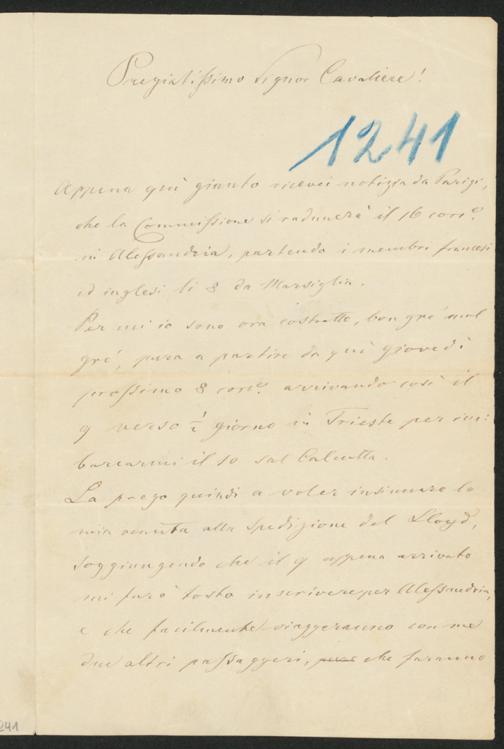 Pregiatissimo Signor Cavaliere!
1241
Appena quì giunto ricevei notizia da Parigi,
che la Commissione si radunerà il 16 corr.e
in Alessandria, partendo i membri francesi
ed inglesi li 8 da Marsiglia.
Per cui io sono ora costretto, bon gré mal
gré, pure a partire da quì giovedì
prossimo 8 corr.e arrivando così il
9 verso ½ giorno in Trieste per im:
barcarmi il 10 sul Calcutta.
La prego quindi a voler insinuare la
mia venuta alla Spedizione del Lloyd,
soggiungendo che il 9 appena arrivato
mi farò tosto inscrivere per Alessandria,
e che facilmente viaggeranno con me
due altri passaggeri, che faranno
241